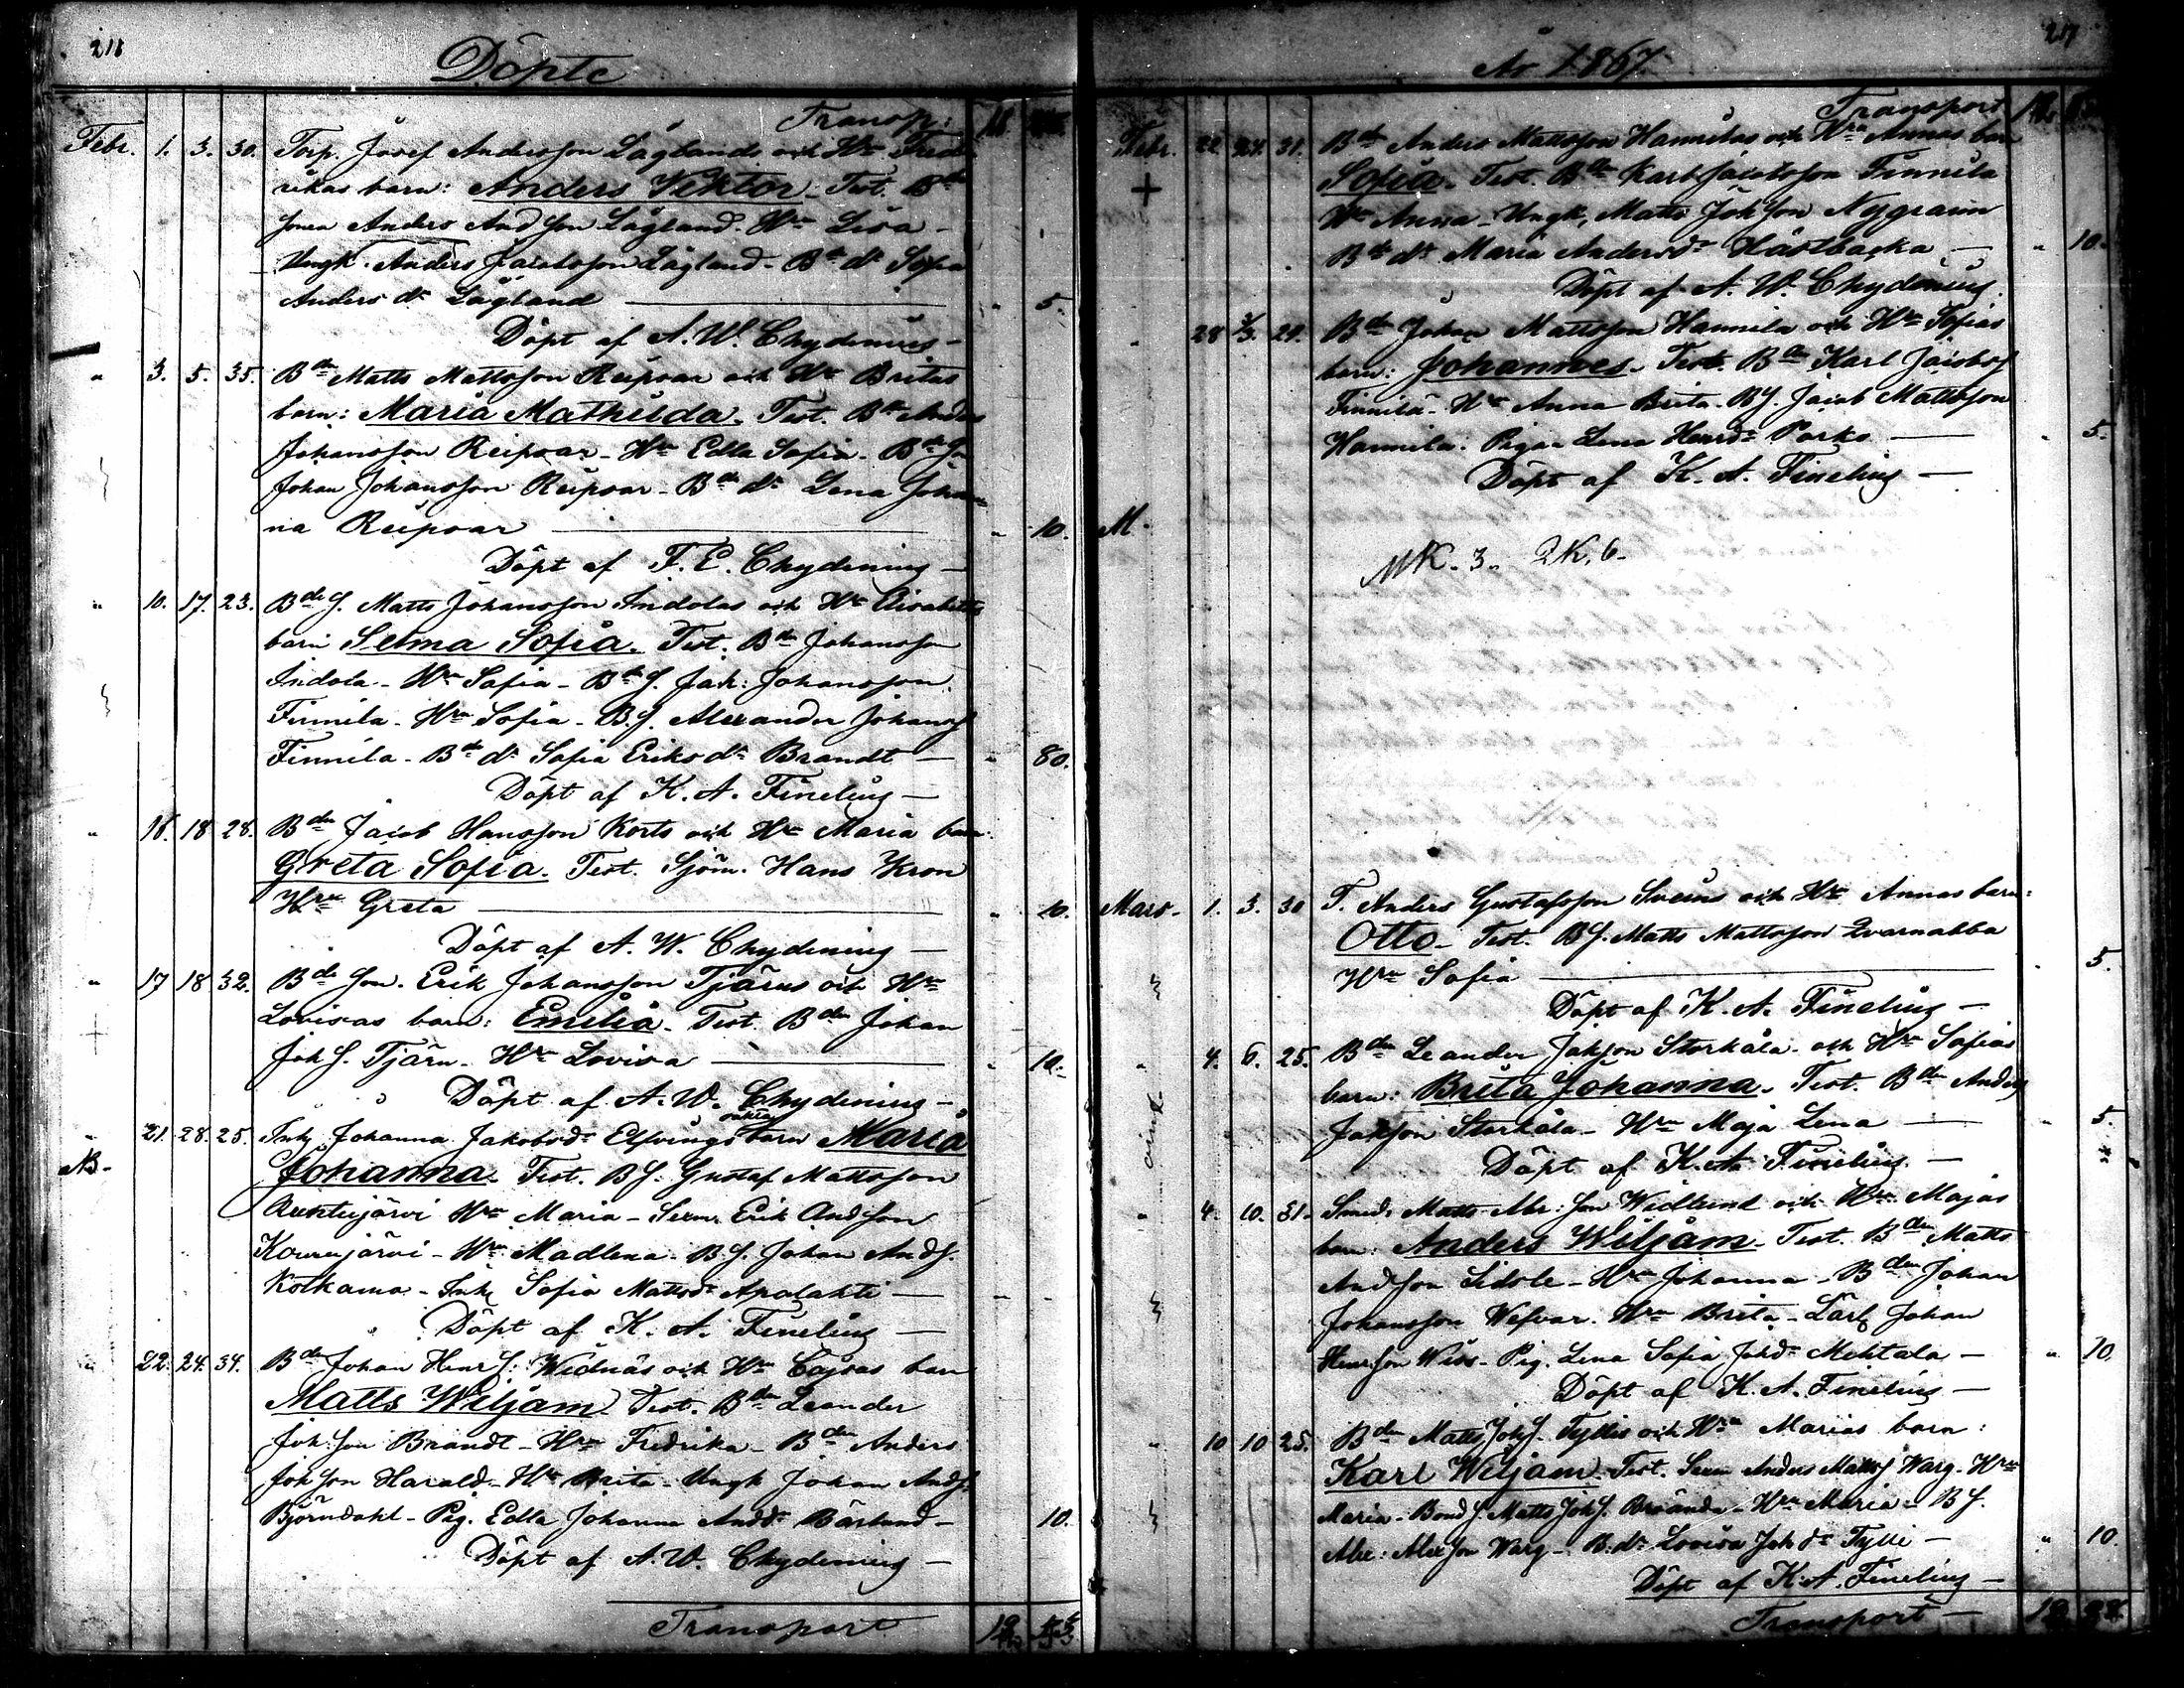 Döpte
Transp:
Febr. 1. 3. 30. Torp. Josef Andersson Låglands och Hru Fred-
rikas barn: Anders Viktor. Test. Bde
sonen Anders Andsson Lågland. Hru Lisa -
Ungk. Anders Jacobsson Lågland - Bde dr Sofia
Anders dr Lågland - " 5.
Döpt af A. W. Chydenius -
" 3. 5. 35. Bdn Matts Mattsson Reipsar och Hru Britas
barn: Maria Mathilda. Test. Bdn Anders
Johansson Reipsar - Hru Edla Sofia - Bde So
Johan Johansson Reipsar - Bde dr Lena Johan-
na Reipsar - " 10.
Döpt af F. E. Chydenius -
" 10. 17. 23. Bde S. Matts Johansson Indolas och Hru Elisabeths
barn Selma Sofia. Test. Bdn Johansson
Indola - Hru Sofia - Bde S. Jak: Johansson
Finnila - Hru Sofia - B.S. Alexander Johanss
Finnila - Bde dr Sofia Eriksdr Brandt - " 80.
Döpt af K. A. Finelius -
" 16. 18. 28. Bdn Jacob Hansson Korts och Hru Maria barn
Greta Sofia. Test. Sjöm. Hans Kron
Hru Greta - " 10.
Döpt af A. W. Chydenius -
" 17 18 32. Bde Son. Erik Johansson Tjärus och Hru
Lovisas barn: Emilia. Test. Bdn Johan
Joh S. Tjärn - Hru Lovisa - " 10.
Döpt af A. W. Chydenius -
" 21. 28. 25. Ink Johanna Jakobsdr Elfvings oäkta barn Maria
NB.
Johanna. Test. B S. Gustaf Mattsson
Hru Maria - Sexm. Erik Andsson
Hru Madlena - B S. Johan Ands.
Kolkama - Ink Sofia Mattsdr Apalahti -
Döpt af K. A. Finelius -
" 22. 24. 34. Bdn Johan Henr S. Widnäs och Hru Cajsas barn
Matts Wiljam. Test. Bdn Leander
Joh:son Brandt - Hru Fredrika - Bdn Anders
Johson Harald - Hru Brita - Ungk Johan Ands:
Björndahl - Pig. Edla Johanna Andd Bärland - 10.
Döpt af A. W. Chydenius -
Transport
År 1867.
Transport
Febr. 22. 24. 31. Bdn Anders Mattsson Hannilas och Hru Annas barn
+
Sofia. Test. Bdn Karl Jacobsson Finnila
Hru Anna - Ungk. Matts Johson Nygrann
Bde dr Maria Andersdr Hästbacka - " 10.
Döpt af A. W. Chydenius.
" 28 2/3. 29. Bdn Johan Mattsson Hannila och Hru Sofias
barn: Johannes. Test. Bdn Karl Jacobss
Finnila - Hru Anna Brita - BS. Jacob Mattsson
Hannila. Pigan Lena Henrdr Porko - " 5.
Döpt af K. A. Finelius -
M.
MK. 3. QK. 6.
Mars. 1. 3. 30 T. Anders Gustafsson Sveins och Hru Annas barn:
Otto - Test. BS. Matts Mattsson Qvarnabba
Hru Sofia - " 5.
Döpt af K. A. Finelius -
" 4. 6. 25. Bdn Leander Jakson Storkåla - och Hru Sofias
barn: Brita Johanna. Test. Bdn Anders
Jakson Storkåla - Hru Maja Lena - " 5.
Döpt af K. A. Finelius -
" 4. 10. 31. Smed. Matts Abr: son Widlund och Hru Majas
barn: Anders Wiljam - Test. Bdn Matts
Andsson Sidole - Hru Johanna - Bdn Johan
Johansson Wefvar. Hru Brita - Lärl Johan
Henrson Wiss - Pig. Lena Sofia Johdr Mehtala - " 10.
Döpt af K. A. Finelius -
" 10 10 25. Bdn Matts JohS. Tyllis och Hru Marias barn:
Karl Wiljam. Test. Sexm Anders Matts Warg - Hru
Maria - Bond S. Matts JohS. Brännda - Hru Maria - B S.
Alex: Alexson Warg - B.dr Lovisa Joh dr Tylli - " 10.
Döpt af K. A. Finelius -
Transport -